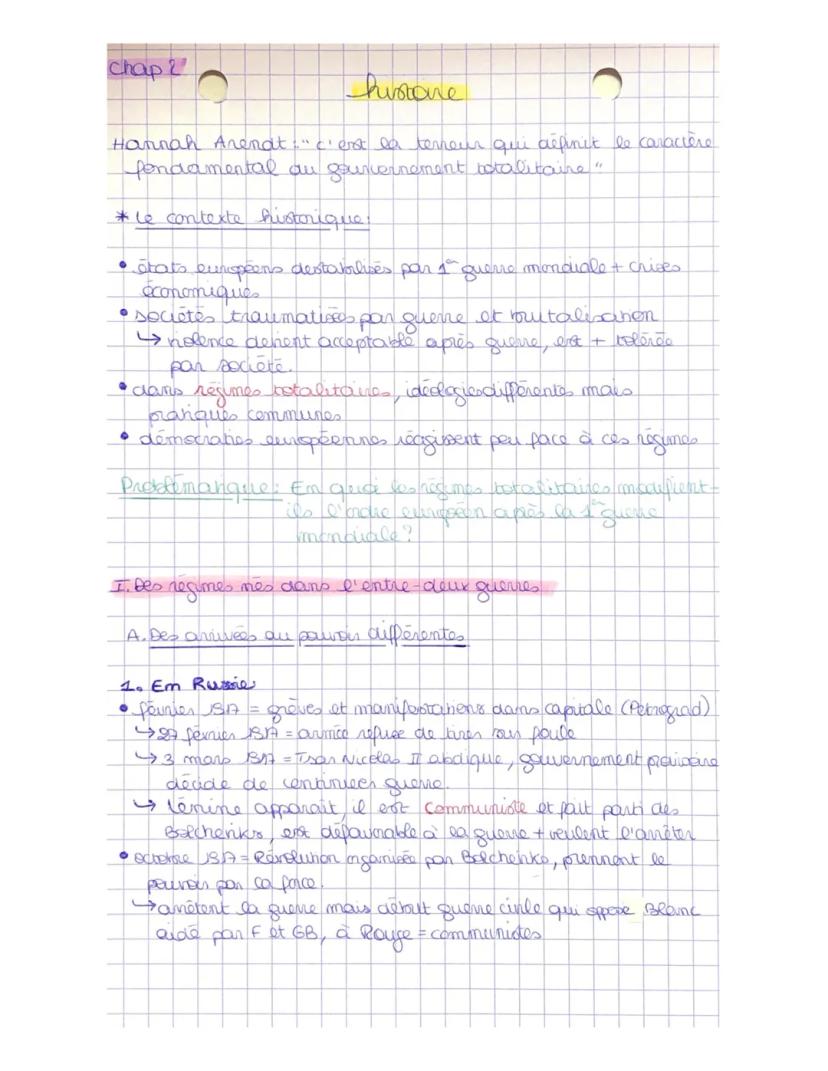 Chap 2
histoire
Hannah Arendt : "c'est la terreur qui définit le caractère
fondamental du gouvernement totalitaire"
* Le contexte historique :
• états européens destabilisés par 1ère guerre mondiale + crises
économiques
• sociétés traumatisées par guerre et brutalisation
↳ violence devient acceptable après guerre, est + tolérée
par société.
• dans régimes totalitaires, idéologies différentes mais
pratiques communes
• démocraties européennes réagissent peu face à ces régimes
Problématique : En quoi les régimes totalitaires modifient-
ils l'ordre européen après la 1ère guerre
mondiale ?
I. Des régimes nés dans l'entre-deux guerres
A. Des arrivées au pouvoir différentes
1. En Russie
• février 1917 = grèves et manifestations dans capitale (Petrograd)
↳ 27 février 1917 = armée refuse de tirer sur foule
↳ 3 mars 1917 = Tsar Nicolas II abdique, gouvernement provisoire
décide de continuer guerre.
↳ Lénine apparaît, il est communiste et fait parti des
Bolcheviks, est défavorable à la guerre + veulent l'arrêter
• octobre 1917 = Révolution organisée par Bolcheviks, prennent le
pouvoir par la force.
↳ arrêtent la guerre mais début guerre civile qui oppose Blanc
aidé par F et GB, à Rouge = communistes